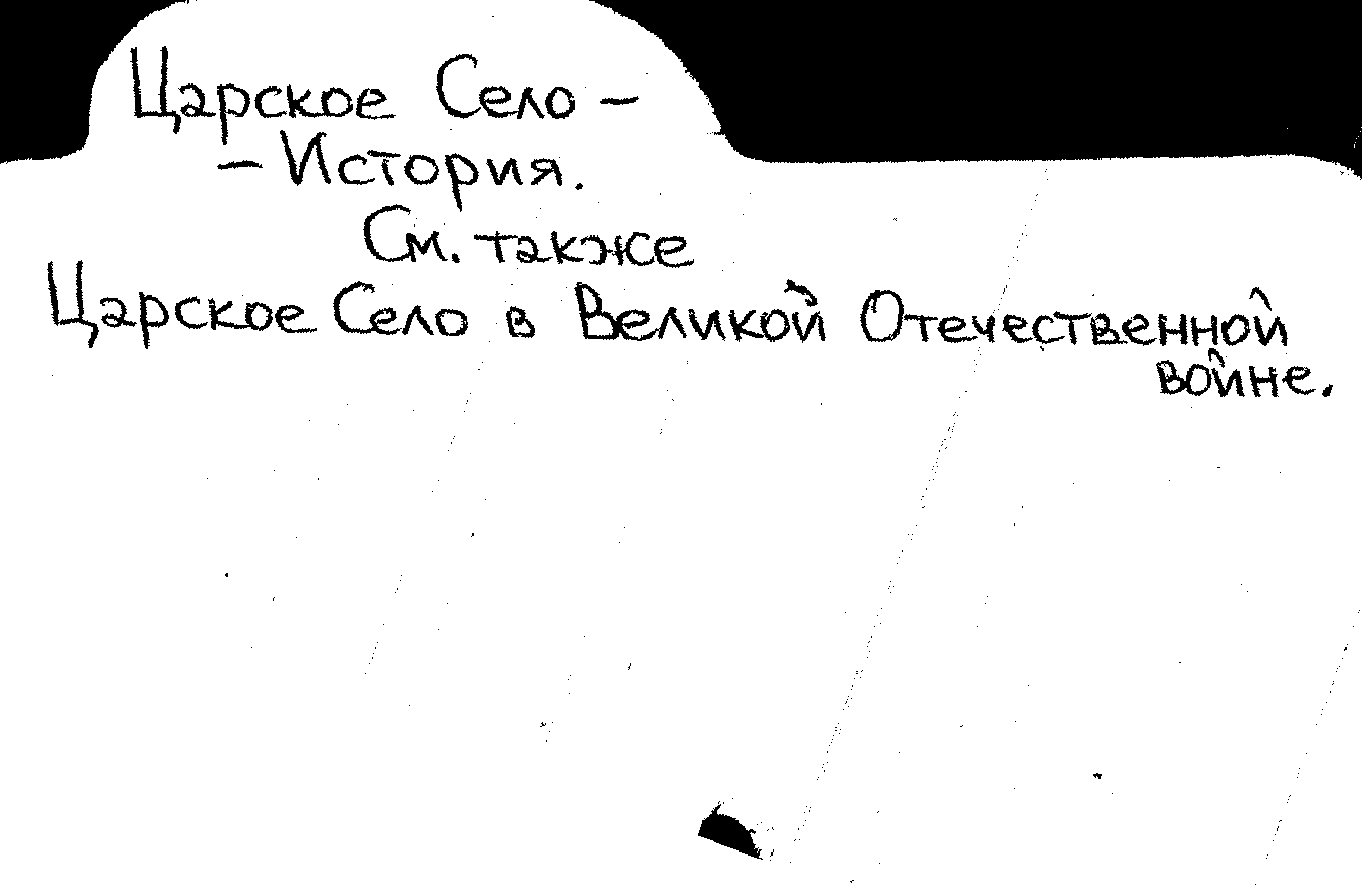 Царское Село –
– История.
См. также
Царское Село в Великой Отечественной
войне.